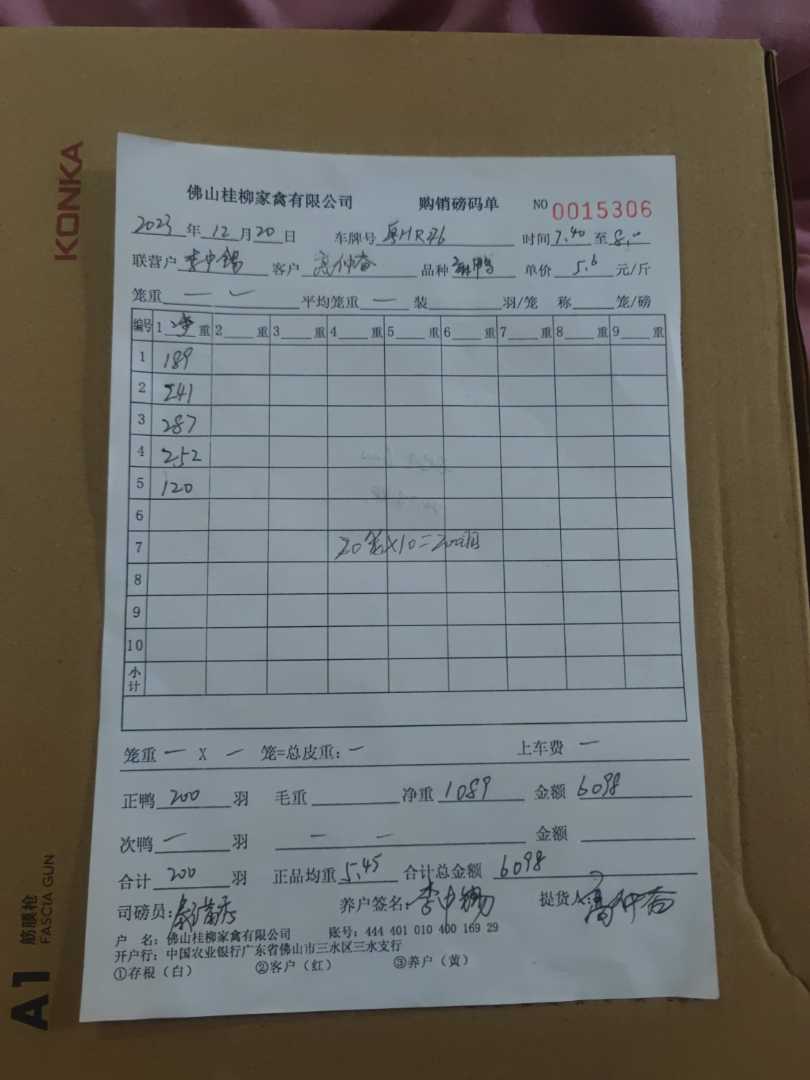 KONKA
佛山桂柳家禽有限公司 购销磅码单 NO 0015306
2023 年 12 月 20 日 车牌号 时间 7.40 至 8.00
联营户 李中锡 客户 品种 单价 5.6 元/斤
笼重 一 平均笼重 一 装 羽/笼 称 笼/磅
编号 1 重 2 重 3 重 4 重 5 重 6 重 7 重 8 重 9 重
1 189
2 241
3 287
4 252
5 120
6
7 20笼×10=200
8
9
10
小计
笼重 一 X 一 笼=总皮重: 一 上车费 一
正鸭 200 羽 毛重 净重 1089 金额 6098
次鸭 一 羽 一 一 金额
合计 200 羽 正品均重 5.45 合计总金额 6098
司磅员: 养户签名: 李中锡 提货人:
户 名: 佛山桂柳家禽有限公司 账号: 444 401 010 400 169 29
开户行: 中国农业银行广东省佛山市三水区三水支行
①存根（白） ②客户（红） ③养户（黄）
A1 筋膜枪
FASCIA GUN